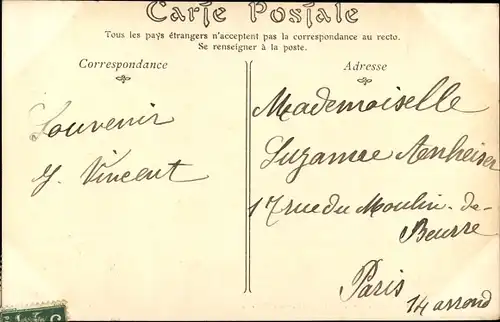 Carte Postale
Tous les pays étrangers n'acceptent pas la correspondance au recto.
Se renseigner à la poste.
Correspondance
Souvenir
Y. Vincent
Adresse
Mademoiselle
Suzanne
17 rue du Moulin-de-
Beurre
Paris
14 arrond